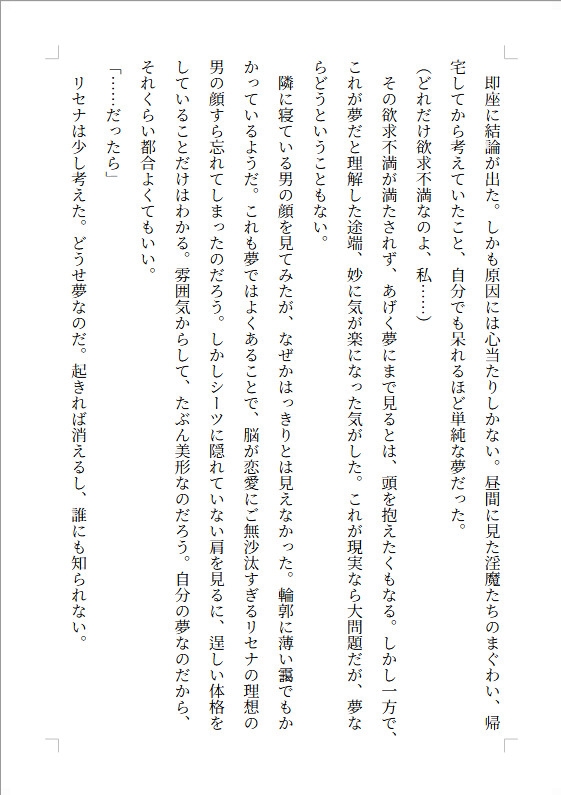 即座に結論が出た。しかも原因には心当たりしかない。昼間に見た淫魔たちのまぐわい、帰
宅してから考えていたこと、自分でも呆れるほど単純な夢だった。
（どれだけ欲求不満なのよ、私……）
　その欲求不満が満たされず、あげく夢にまで見るとは、頭を抱えたくもなる。しかし一方で、
これが夢だと理解した途端、妙に気が楽になった気がした。これが現実なら大問題だが、夢な
らどうということもない。
　隣に寝ている男の顔を見てみたが、なぜかはっきりとは見えなかった。輪郭に薄い靄でもか
かっているようだ。これも夢ではよくあることで、脳が恋愛にご無沙汰すぎるリセナの理想の
男の顔すら忘れてしまったのだろう。しかしシーツに隠れていない肩を見るに、逞しい体格を
していることだけはわかる。雰囲気からして、たぶん美形なのだろう。自分の夢なのだから、
それくらい都合よくてもいい。
「……だったら」
　リセナは少し考えた。どうせ夢なのだ。起きれば消えるし、誰にも知られない。